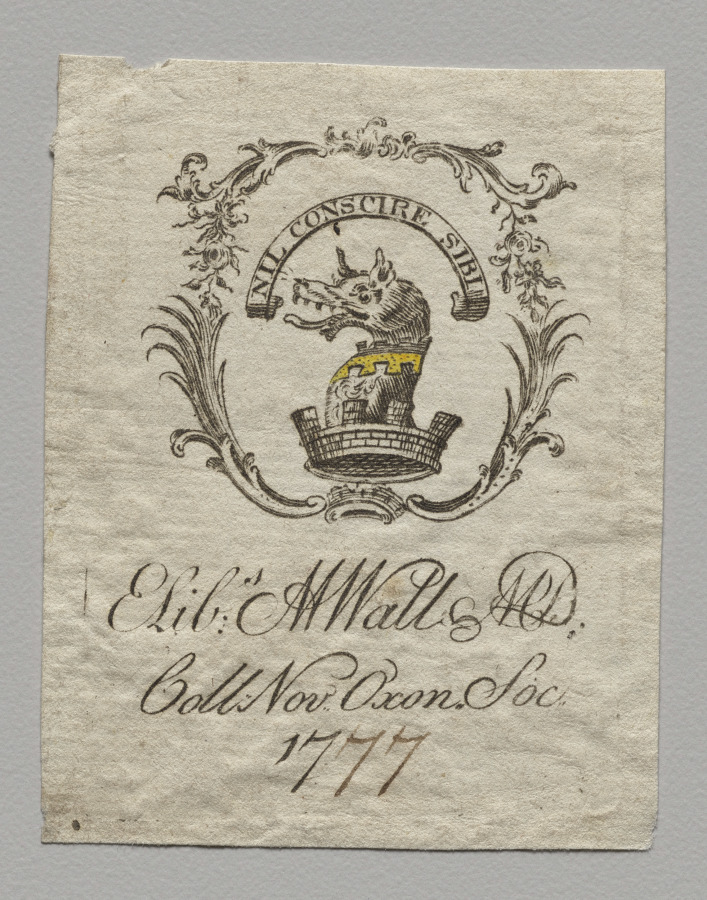 NIL CONSCIRE SIBI
E Lib:s M Wall M.D.
Coll: Nov. Oxon. Soc.
1777